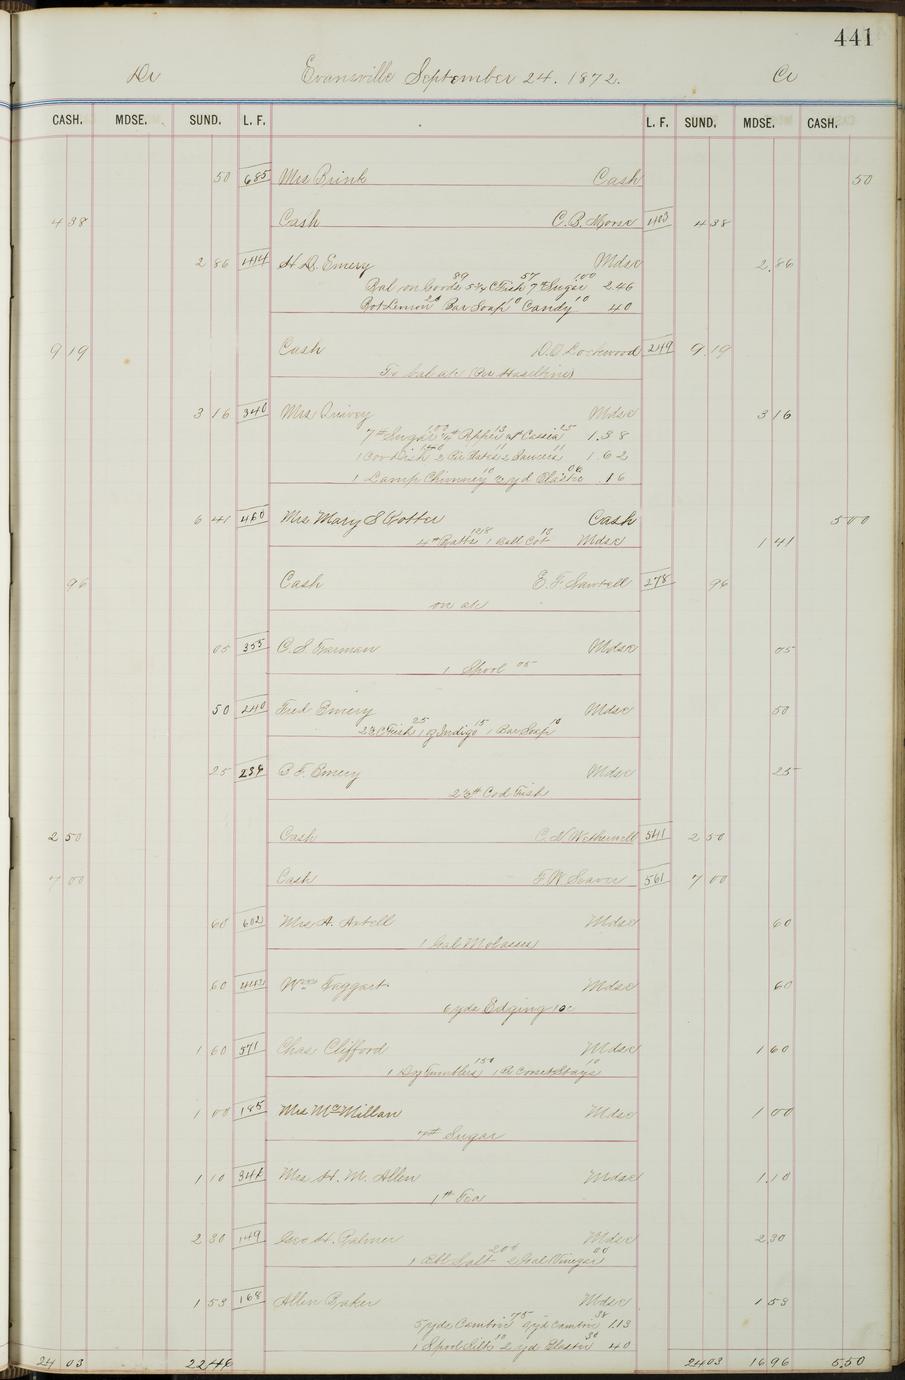 441
Dr Evansville September 24. 1872. Cr
CASH. MDSE. SUND. L. F. L. F. SUND. MDSE. CASH.
50 685 Mrs Brink Cash 50
4 38 Cash C. B. Morse 403 4 38
2 86 444 H. D. Emery Mdse 2.86
Bal on Goods 89 5¾ C Fish 57 7# Sugar 1.00 2.46
Bot Lemon 20 Bar Soap 10 Candy 10 40
9 19 Cash D. D. Lockwood 249 9.19
To bal a/c (Per Haseltine)
3 16 340 Mrs Quivey Mdse 3 16
7# Sugar 1.00 Pepper 13 Cassia 25 1.38
1 Cov Dish 1.40 2 Pie Plates 11 2 Saucers 11 1.62
1 Lamp Chimney 10 yd Elastic 06 .16
6 41 460 Mrs Mary S Potter Cash 5 00
4# Batts 128 1 Ball Cot 13 Mdse 1 41
96 Cash E. F. Sawtell 278 96
on a/c
05 355 C. S. Mdse 05
1 Spool 05
50 240 Fred Emery Mdse 50
C Fish 25 1 oz Indigo 15 1 Bar Soap 10
25 239 B F. Emery Mdse 25
2½# Cod Fish
2 50 Cash C. N. Wetherwell 541 2 50
7 00 Cash F W Seaver 561 7 00
60 602 Mrs A. Axtell Mdse 60
1 Gal Molasses
60 442 Wm Taggart Mdse 60
6 yds Edging 10c
1 60 571 Chas Clifford Mdse 1 60
1 Doz Tumblers 150 1 Pr Corset Stays 10
1 00 185 Mrs McMillan Mdse 1 00
7# Sugar
1 10 342 Mrs H. M. Allen Mdse 1.10
1# Tea
2 80 149 Geo H. Palmer Mdse 2.80
1 Bbl Salt 2 Gal Vinegar
1 53 168 Allen Baker Mdse 1 53
5 yds Cambric .75 yd Cambric 38 1.13
1 Spool Silk 10 2 yd Elastic 30 40
24 03 22 46 24 03 16.96 5.50